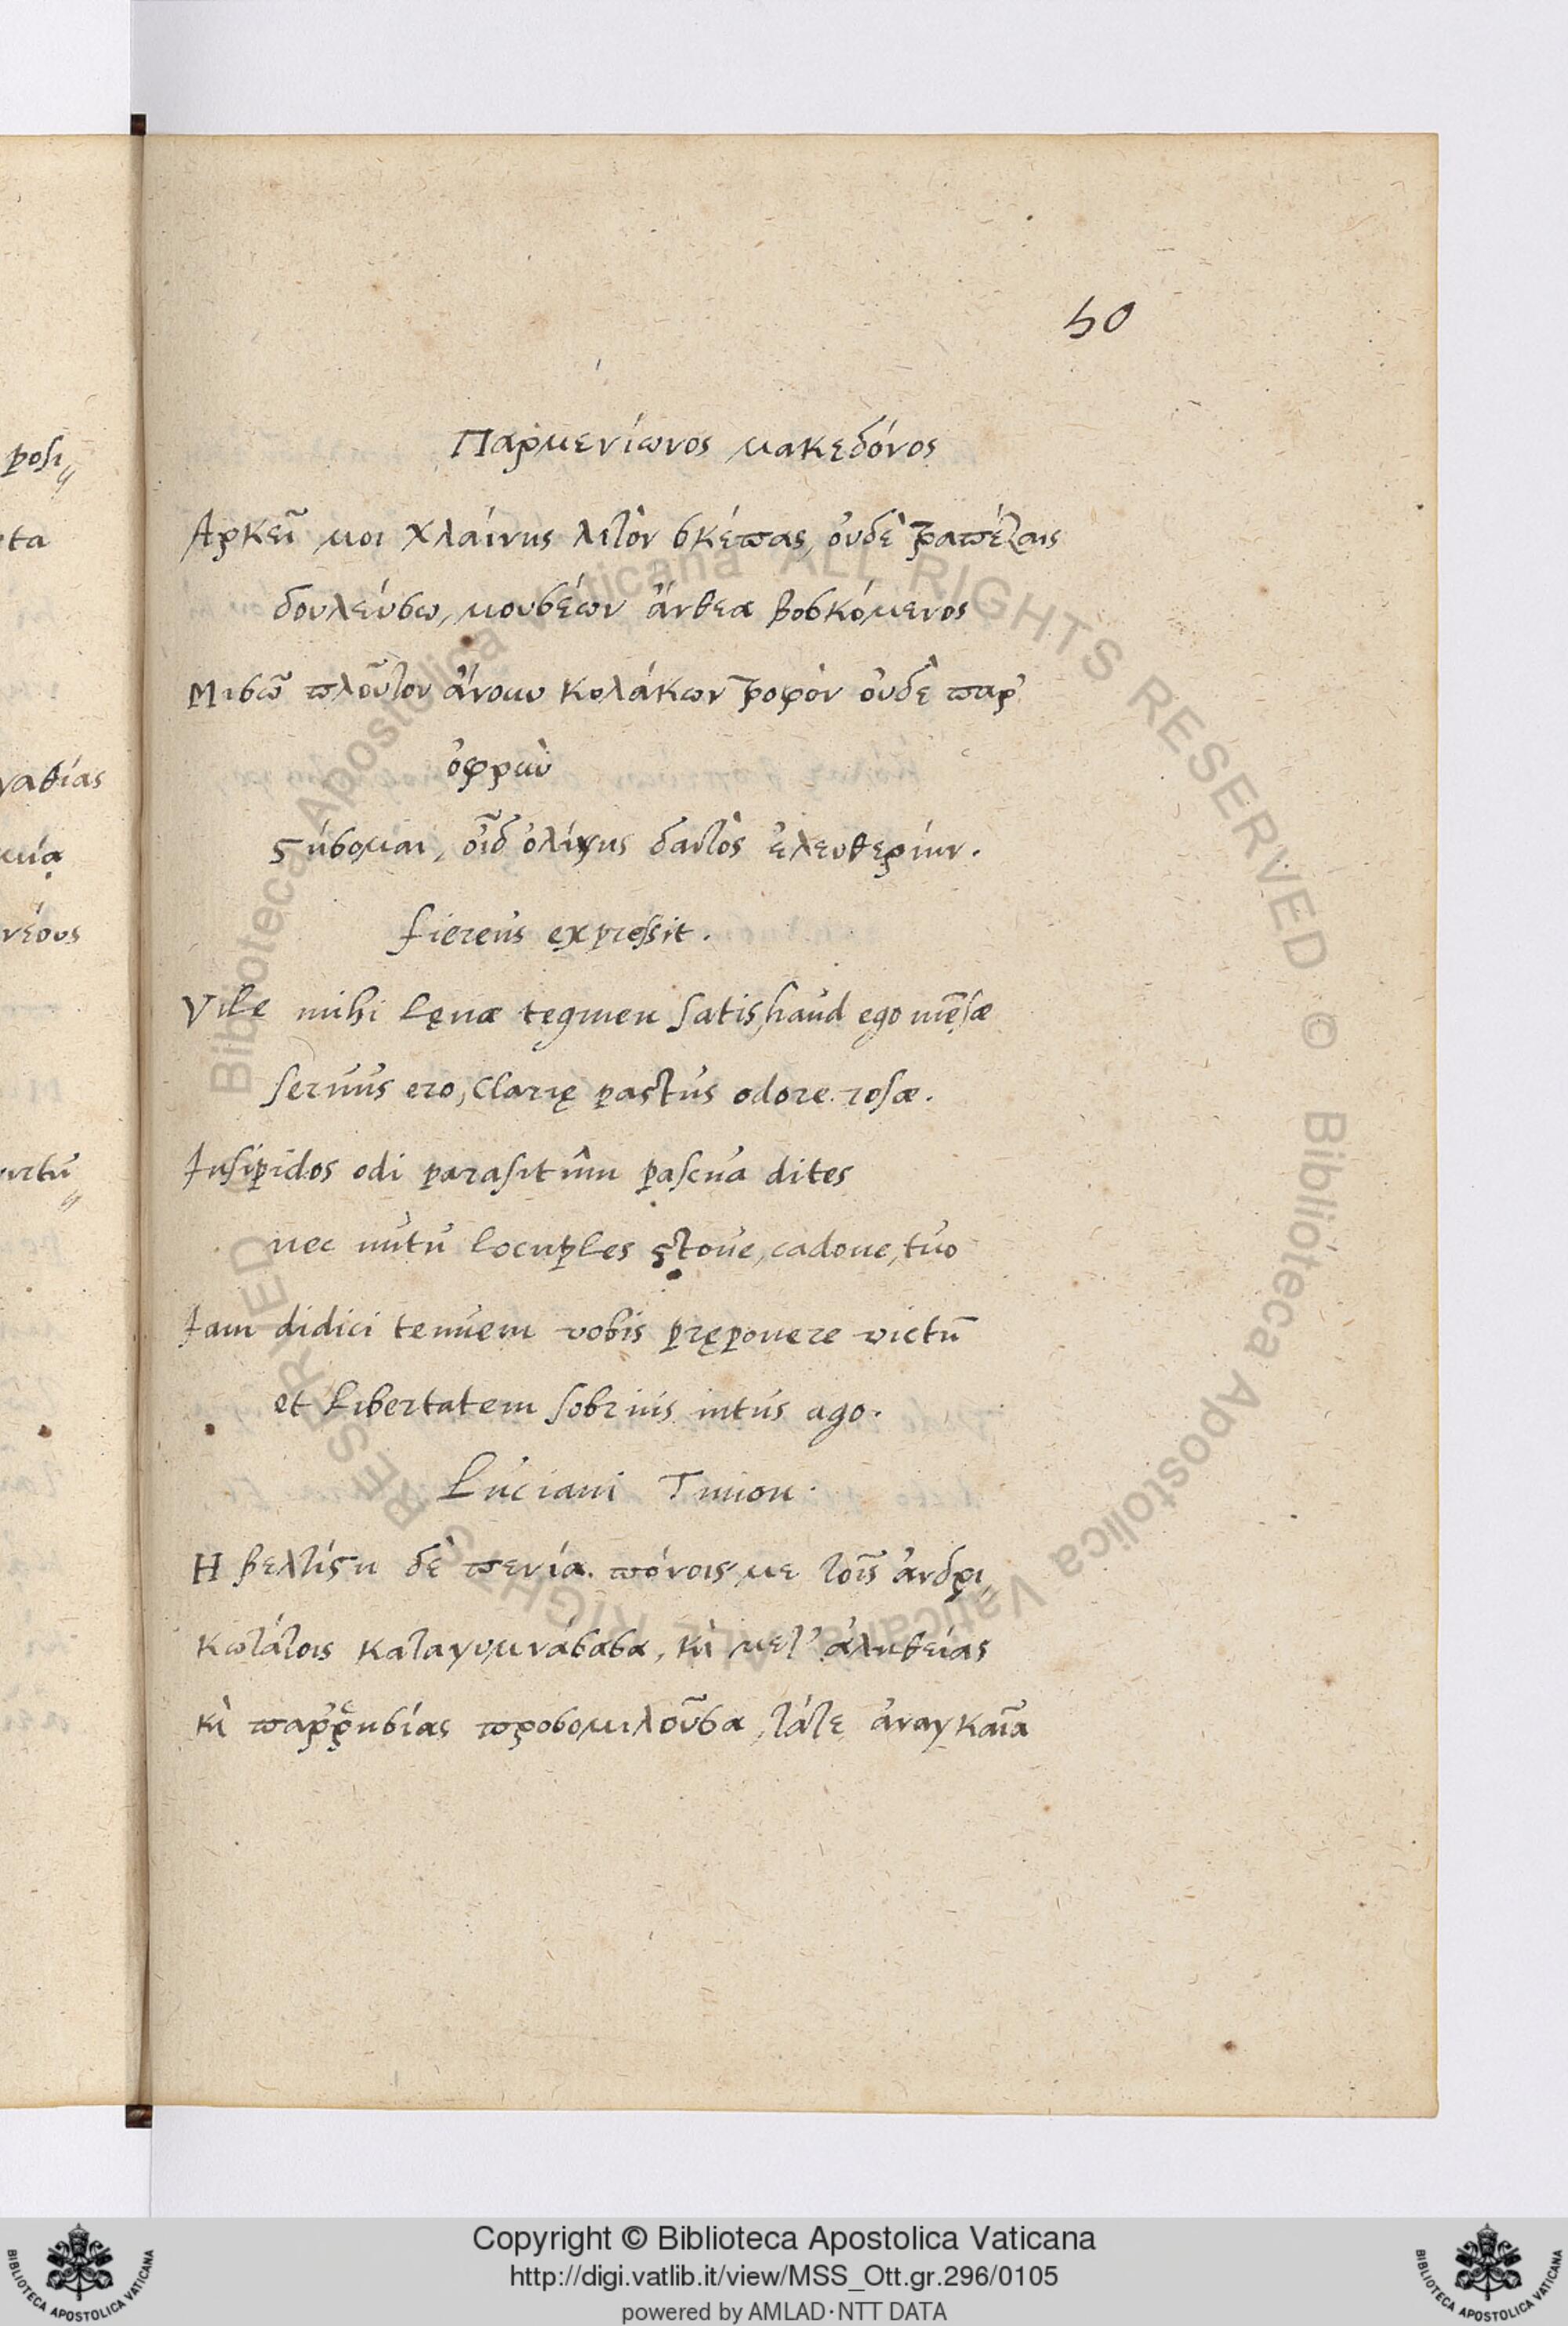 50
Παρμενίωνος μακεδόνος
Αρκεῖ μοι χλαίνης λιτὸν σκέπας, ὀυδὲ τραπέζαις
δουλεύσω, μουσέων ἄνθεα βοσκόμενος
Μισῶ πλοῦτον ἄνοιω κολάκων τροφὸν ὀυδὲ παρ'
ὀφρὺν
στήσομαι, οἶδ' ὀλίγης δαιτὸς ἐλευθερίην.
fiereus expressit.
Vile mihi lęnæ tegmen satis, haud ego mēsæ
seruus ero, clarię pastus odore rosæ.
Insipidos odi parasitûm pascua dites
nec nutu locuples stoue, cadoue, tuo
Iam didici tenuem vobis pręponere victū
et libertatem sobrius intus ago.
Luciani Timon.
Η βελτίστη δὲ πενία. πόνοις με τοῖς ἀνδρι,,
κωτάτοις καταγυμνάσασα, κὶ μετ' ἀληθείας
κὶ παῤῥησίας προσομιλοῦσα, τάτε ἀναγκαῖα
posi,,
ta
γαθίας
μία
νέους
urtū,,
Copyright © Biblioteca Apostolica Vaticana
http://digi.vatlib.it/view/MSS_Ott.gr.296/0105
powered by AMLAD·NTT DATA
BIBLIOTECA APOSTOLICA VATICANA
BIBLIOTECA APOSTOLICA VATICANA
Biblioteca Apostolica Vaticana ALL RIGHTS RESERVED © Biblioteca Apostolica Vaticana ALL RIGHTS RESERVED ©